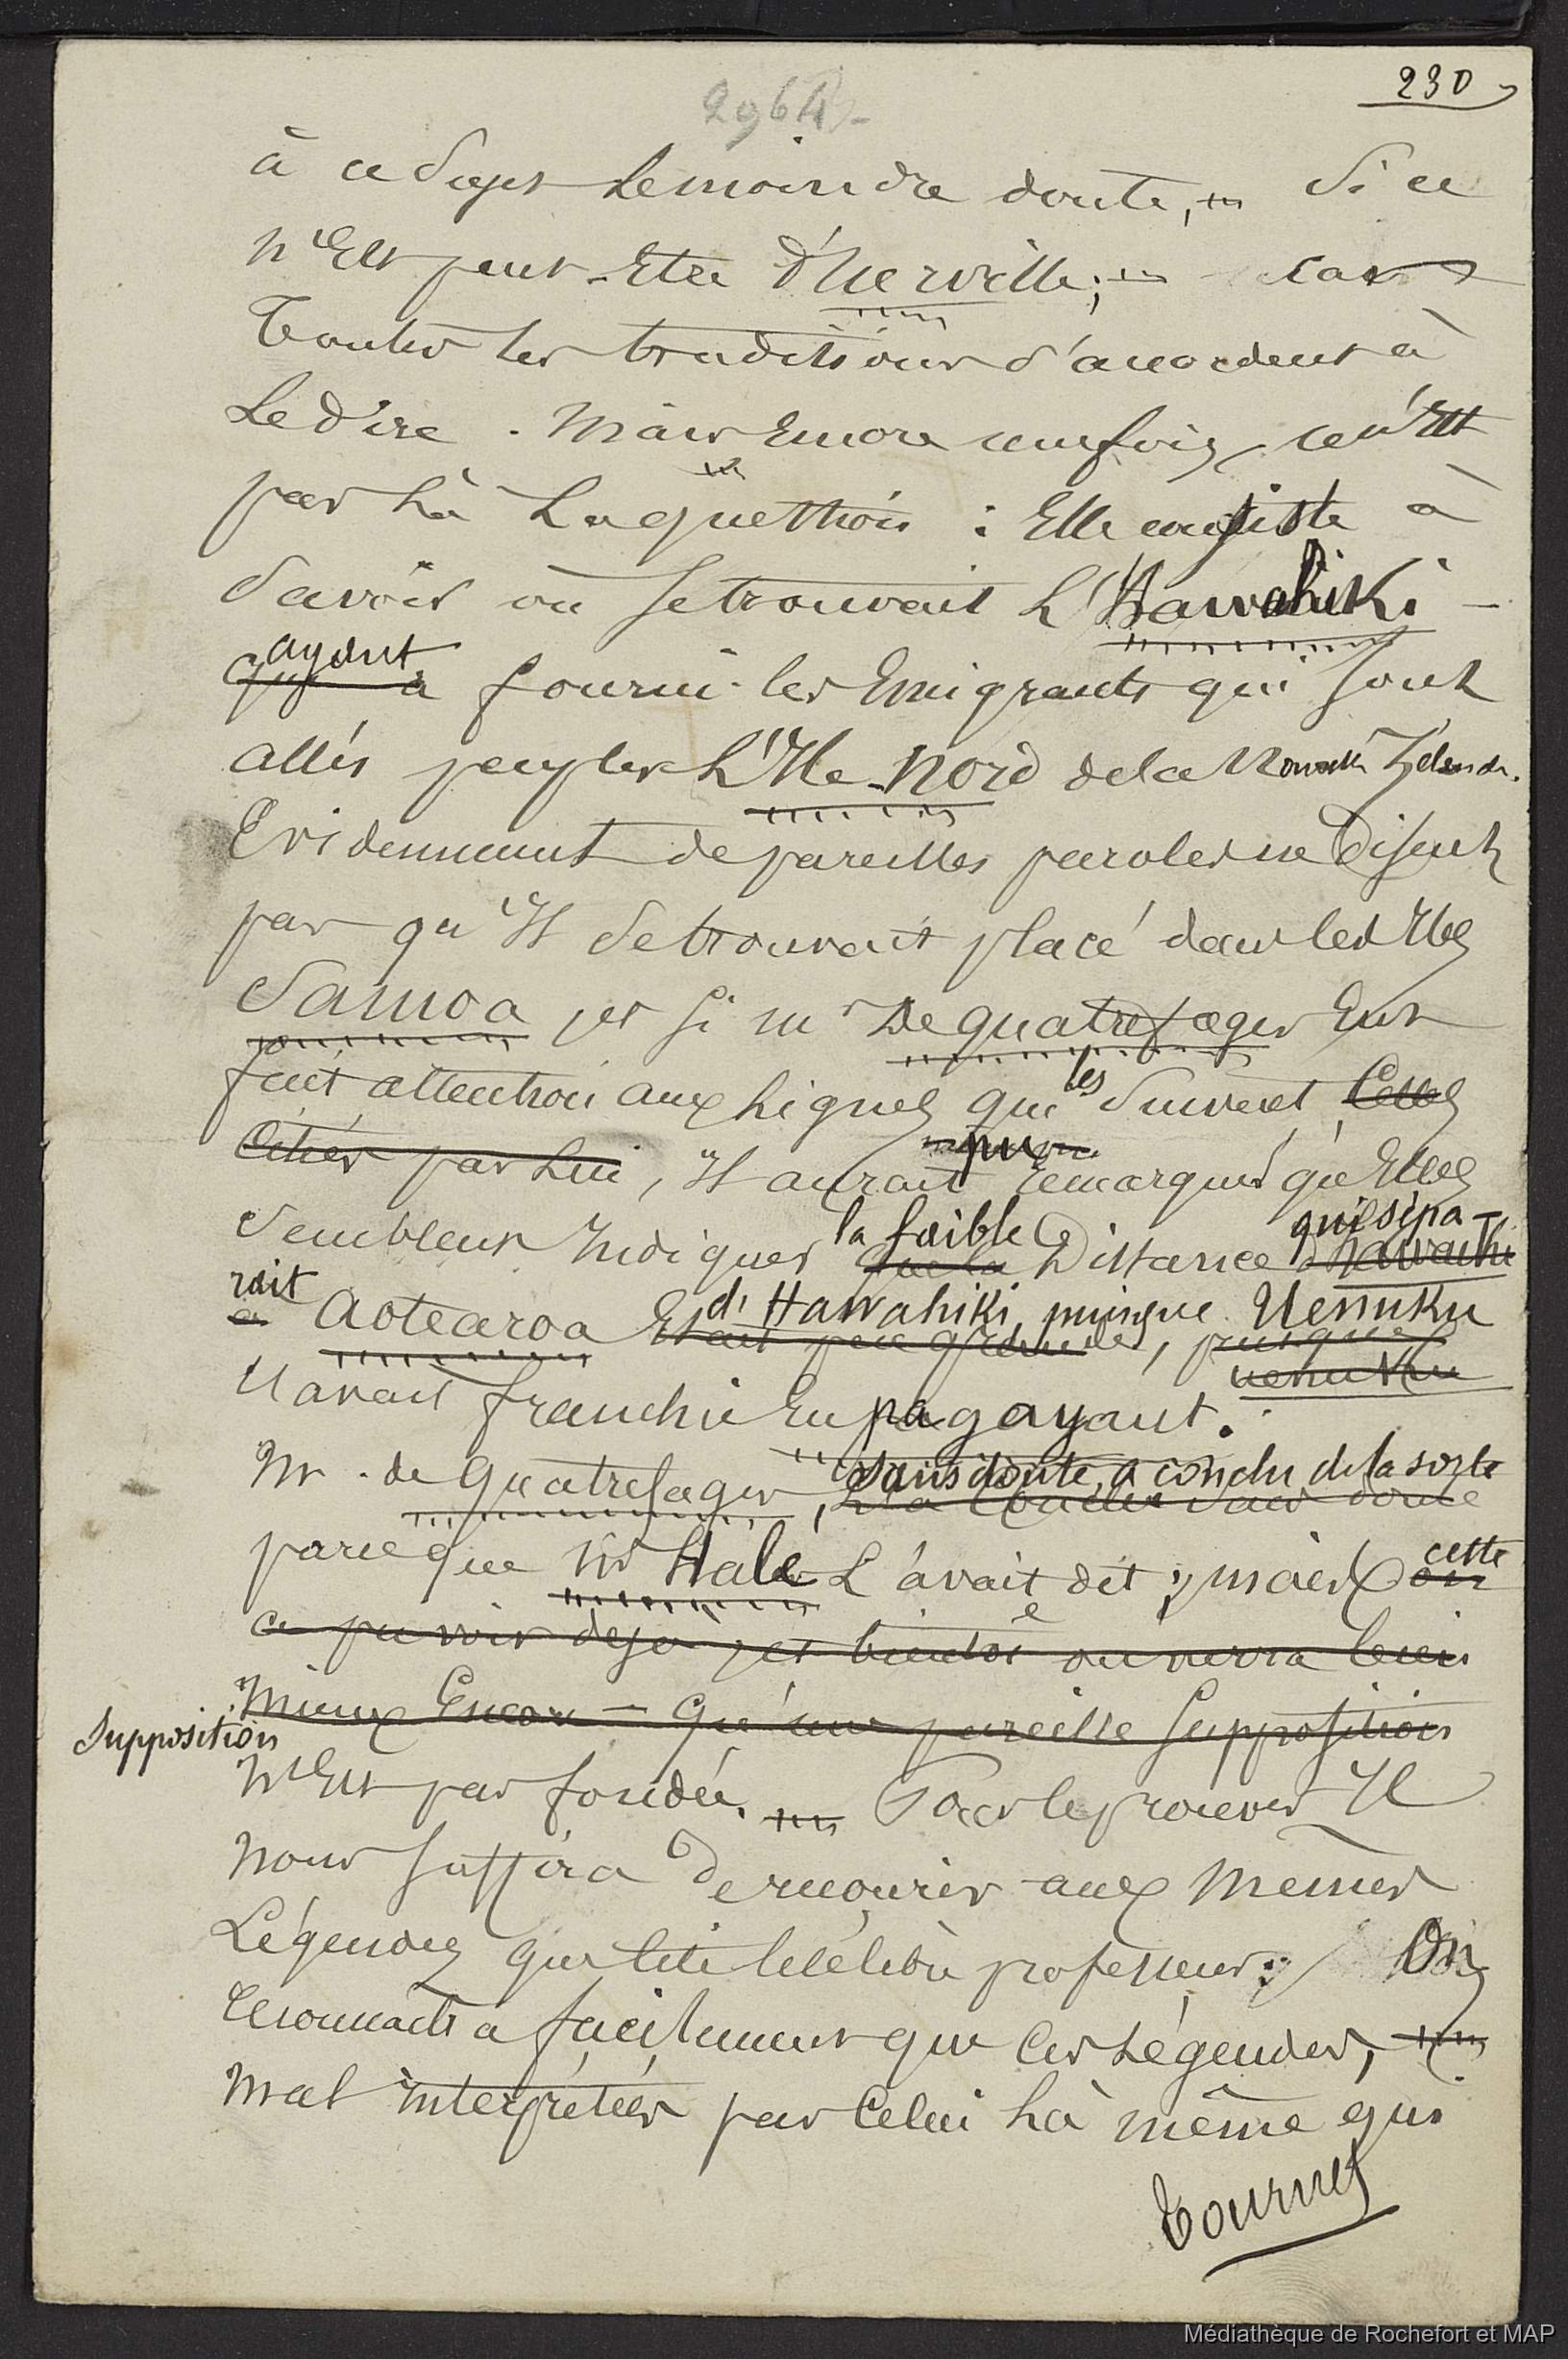 2964
230
à ce sujet le moindre doute, — si ce
n'est peut-être d'Urville; — car
toutes les traditions s'accordent à
le dire. Mais encore une fois, ce n'est
pas là la question : Elle consiste à
savoir où se trouvait l'Hawahiki —
ayant
qui a fourni les Emigrants qui sont
allés peupler l'Ile-Nord de la Nouvelle Zélande.
Evidemment de pareilles paroles ne disent
pas qu'Il se trouvait placé dans les Iles
Samoa, et si mr De quatrefages Eut
fait attention aux lignes qui les suivent, celles
citées par lui, Il aurait pu remarquer qu'Elles
semblent Indiquer la faible distance qui sépa-
que la d'hawaihi
rait Aotearoa d'Hawahiki, puisque Uenuku
a Etait peu grande, puisque
uenuku
l'avait franchie En pagayant.
Mr. de Quatrefages, sans doute, a conclu de la sorte
l'a conclu sans doute
parceque Mr Hale l'avait dit ; mais cette
on
a pu voir déjà, et bientôt on verra bien
mieux Encore — qu'une pareille supposition
supposition
n'Est pas fondée. — Pour le prouver Il
nous suffira de recourir aux mêmes
Légendes que cite le célèbre professeur; On
reconnaîtra facilement que ces Légendes, —
mal interprétées par celui là même qui
Tournez
Médiathèque de Rochefort et MAP